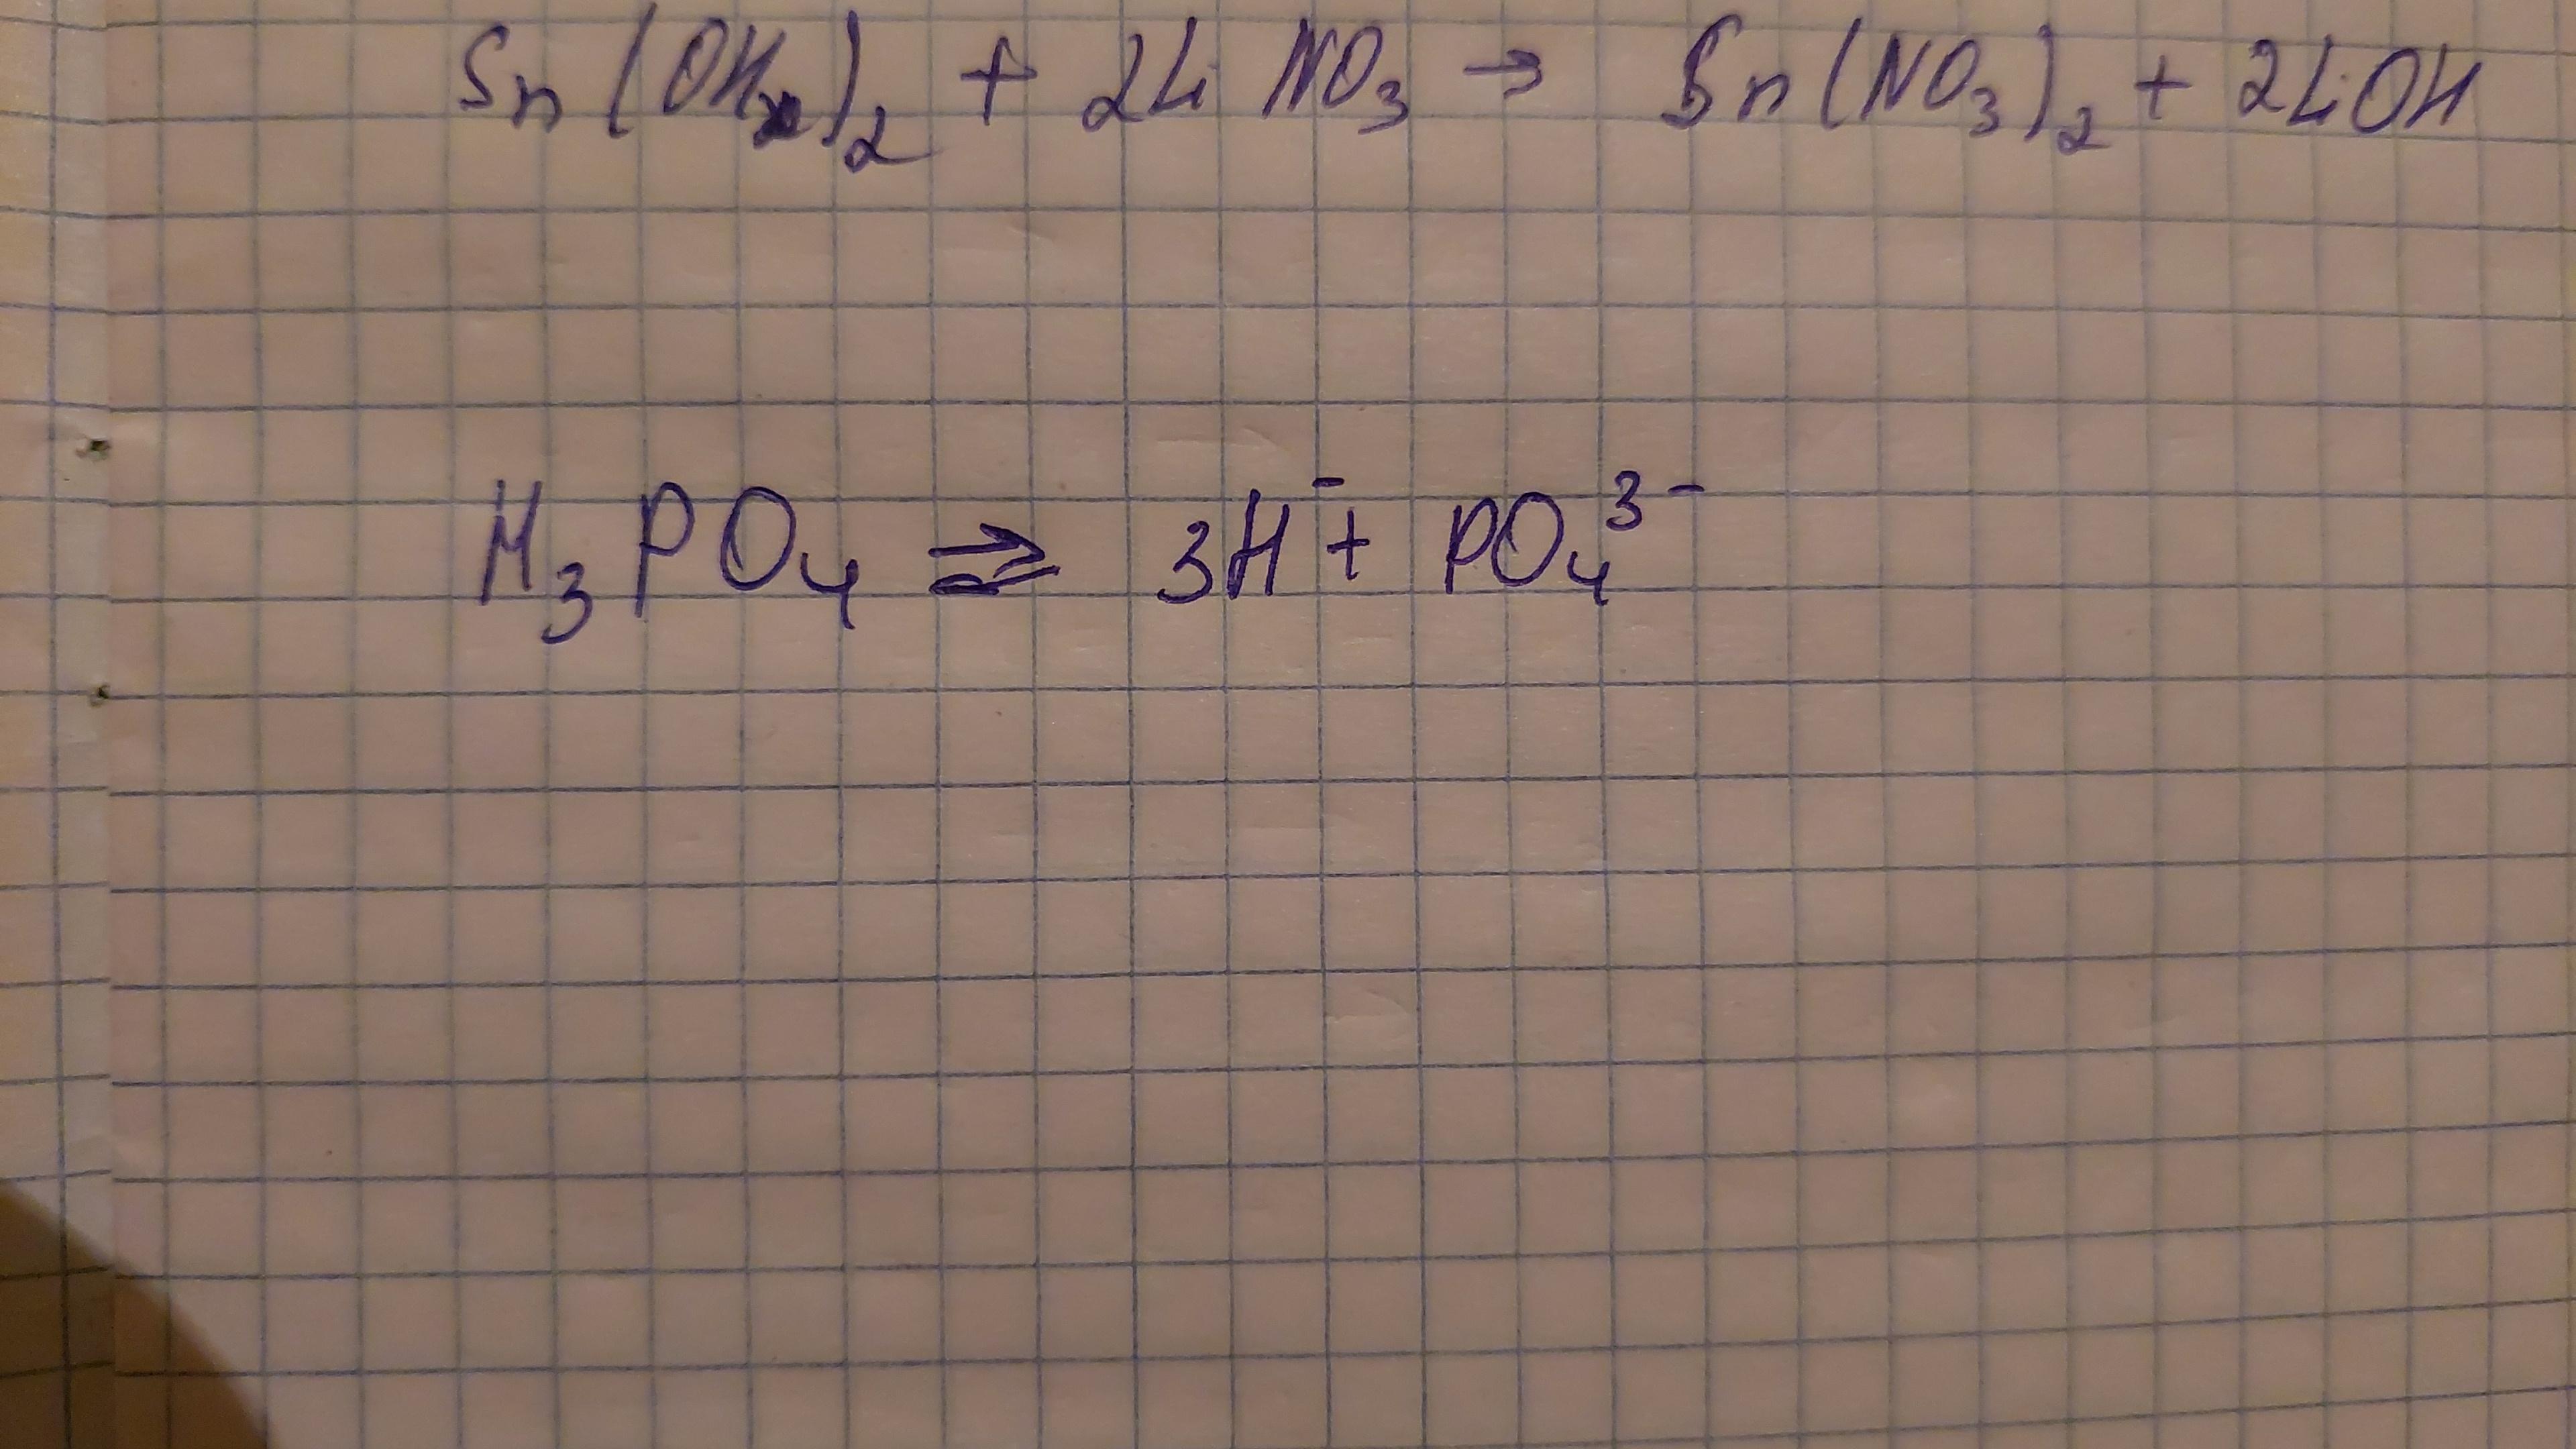 Sn(OH)₂ + 2LiNO₃ → Sn(NO₃)₂ + 2LiOH
H₃PO₄ ⇄ 3H⁻ + PO₄³⁻